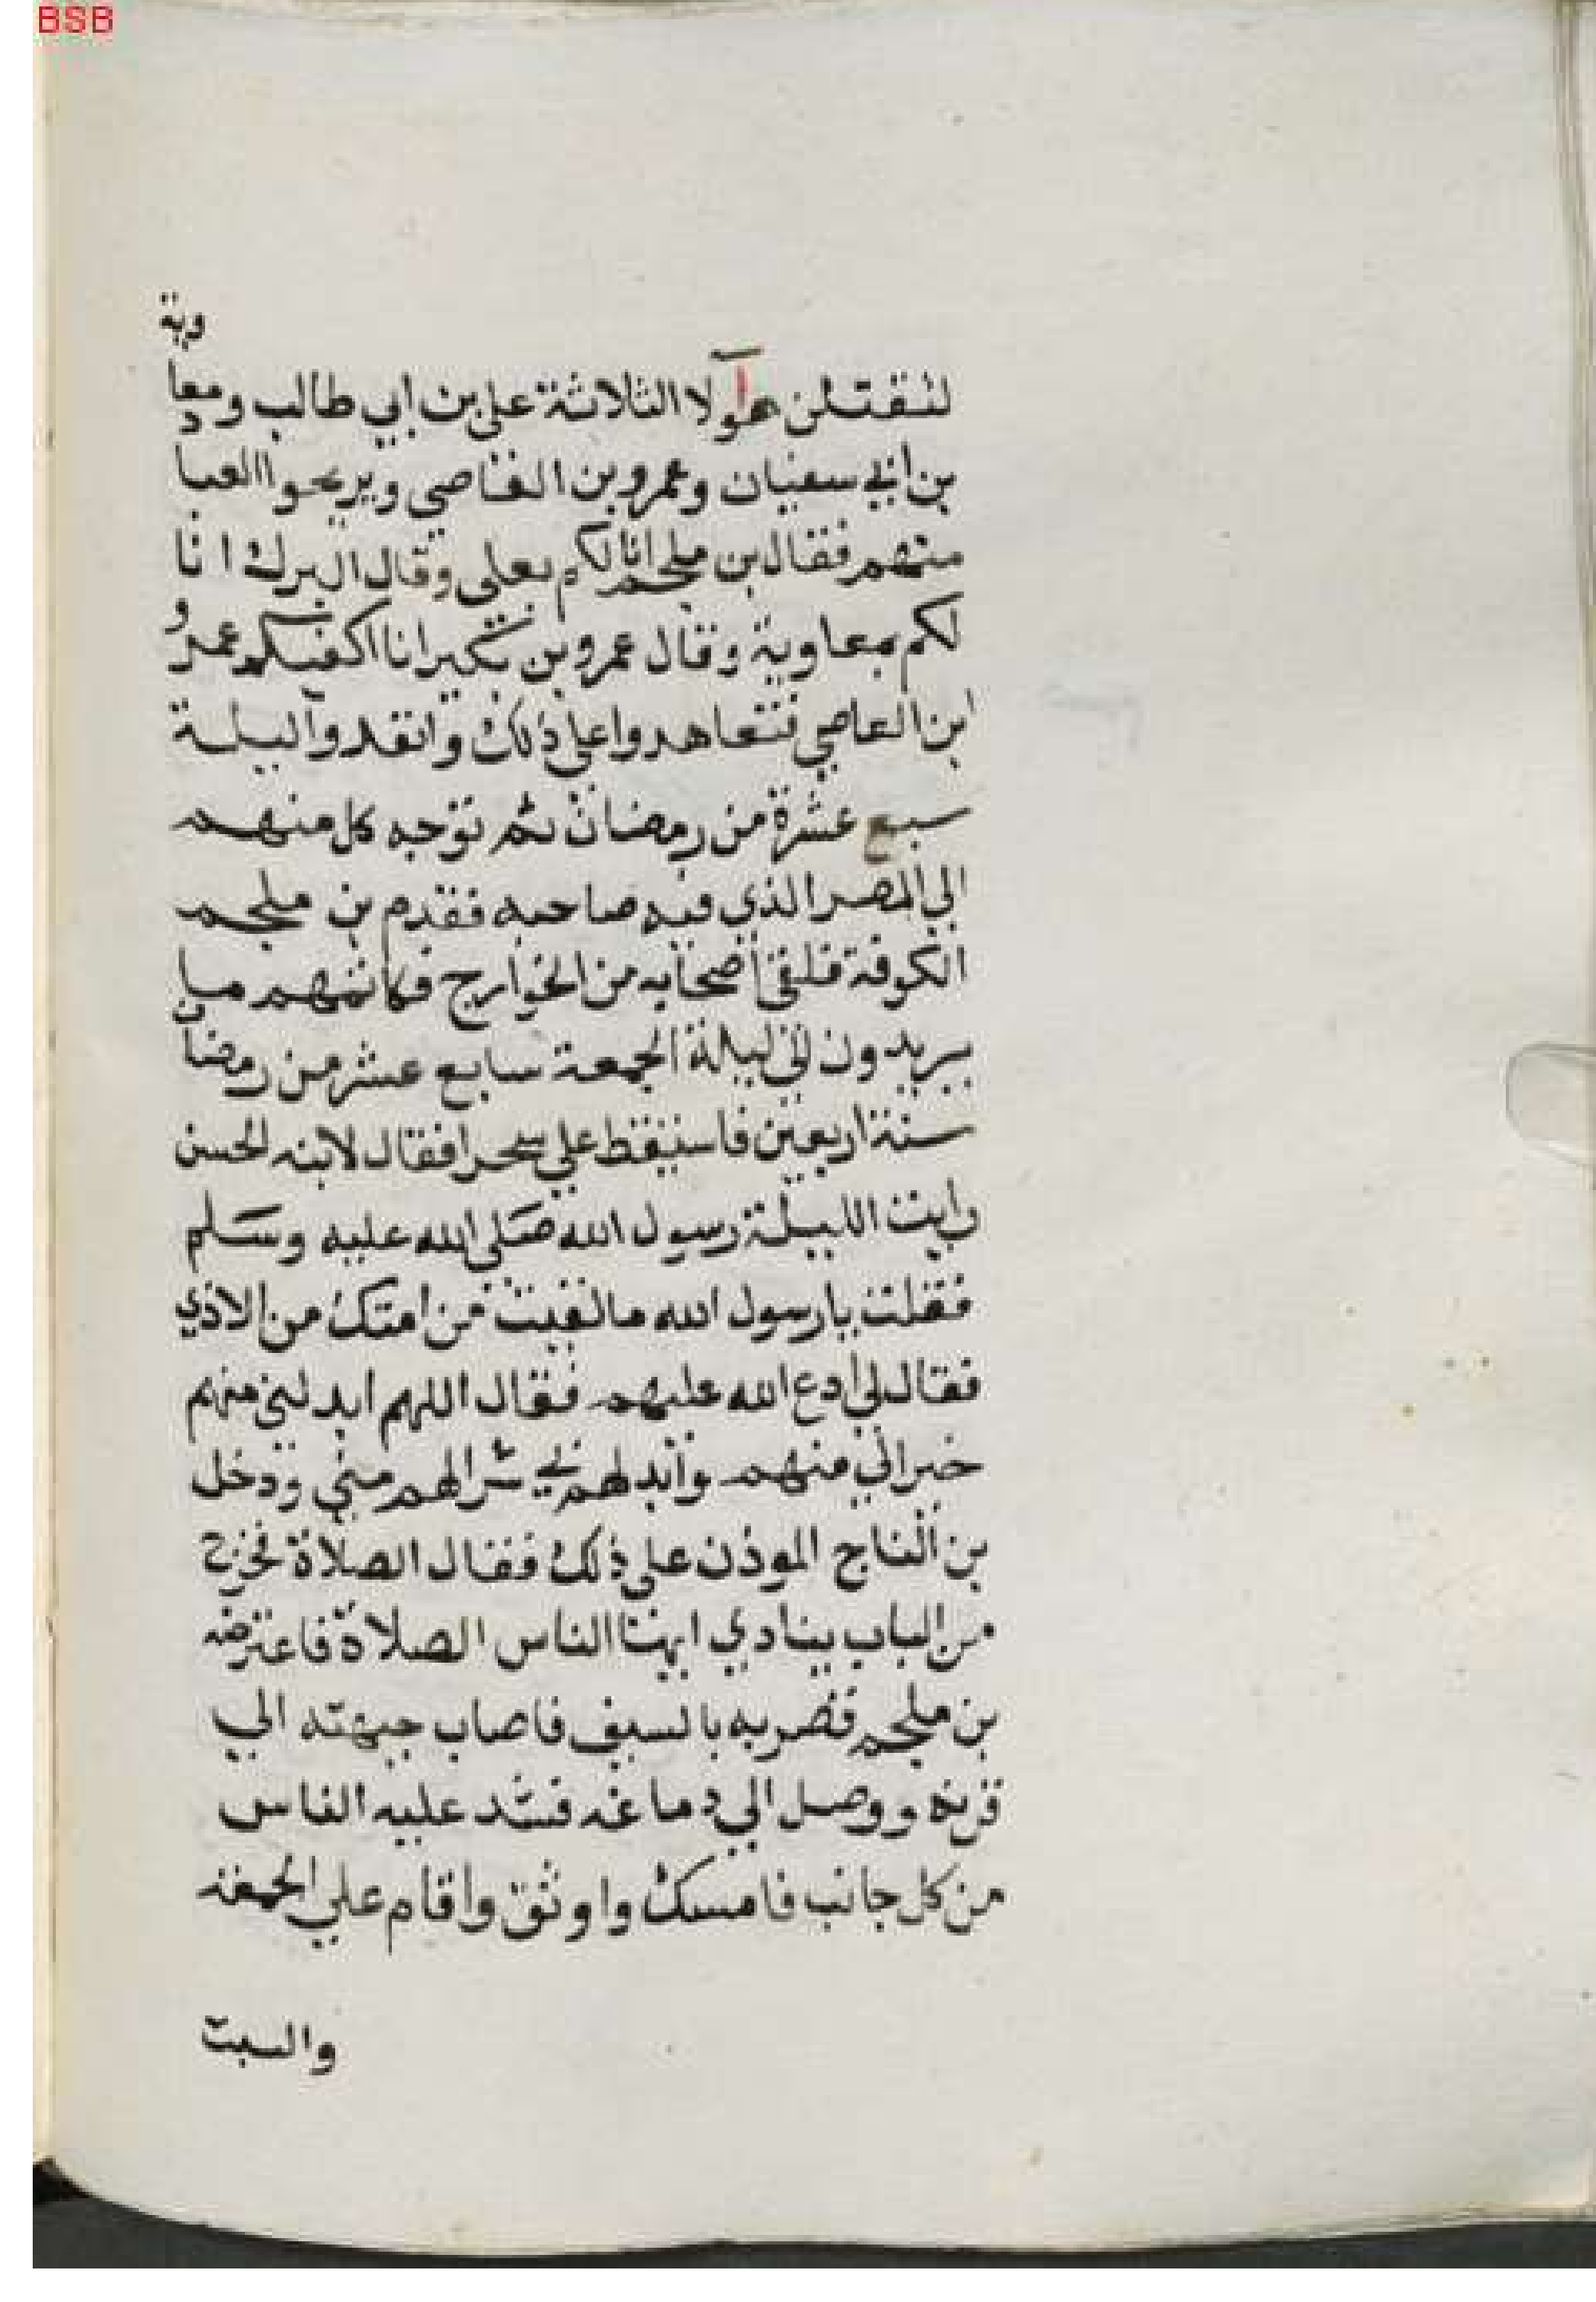 BSB
وية
لنقتلن هولا الثلاثة على بن ابي طالب ومعا
بن ابي سفيان وعمرو بن العاصي ويريحوا العبا
د
منهم فقال بن ملجم انا لكم بعلي وقال البرك انا
لكم بمعاوية وقال عمرو بن بكير انا اكفيكم عمرو
ابن العاصي فتعاهدوا على ذلك واتعدوا ليلة
سبع عشرة من رمضان ثم توجه كل منهم
الي المصر الذي فيه صاحبه فقدم بن ملجم
الكوفة فلقي اصحابه من الخوارج فكاتمهم ما
يريدون الي ليلة الجمعة سابع عشر من رمضان
سنة اربعين فاستيقظ علي سحرا فقال لابنه الحسن
رايت الليلة رسول الله صلى الله عليه وسلم
فقلت يا رسول الله ما لقيت من امتك من الاذي
فقال لي ادع الله عليهم فقال اللهم ابدلني منهم
خيرا لي منهم وابدلهم بي شرا لهم مني ودخل
بن التاج الموذن على ذلك فقال الصلاة فخرج
من الباب ينادي ايها الناس الصلاة فاعترضه
بن ملجم فضربه بالسيف فاصاب جبهته الي
قرنه ووصل الي دماغه فشد عليه الناس
من كل جانب فامسك واوثق واقام علي الجمعة
والسبت